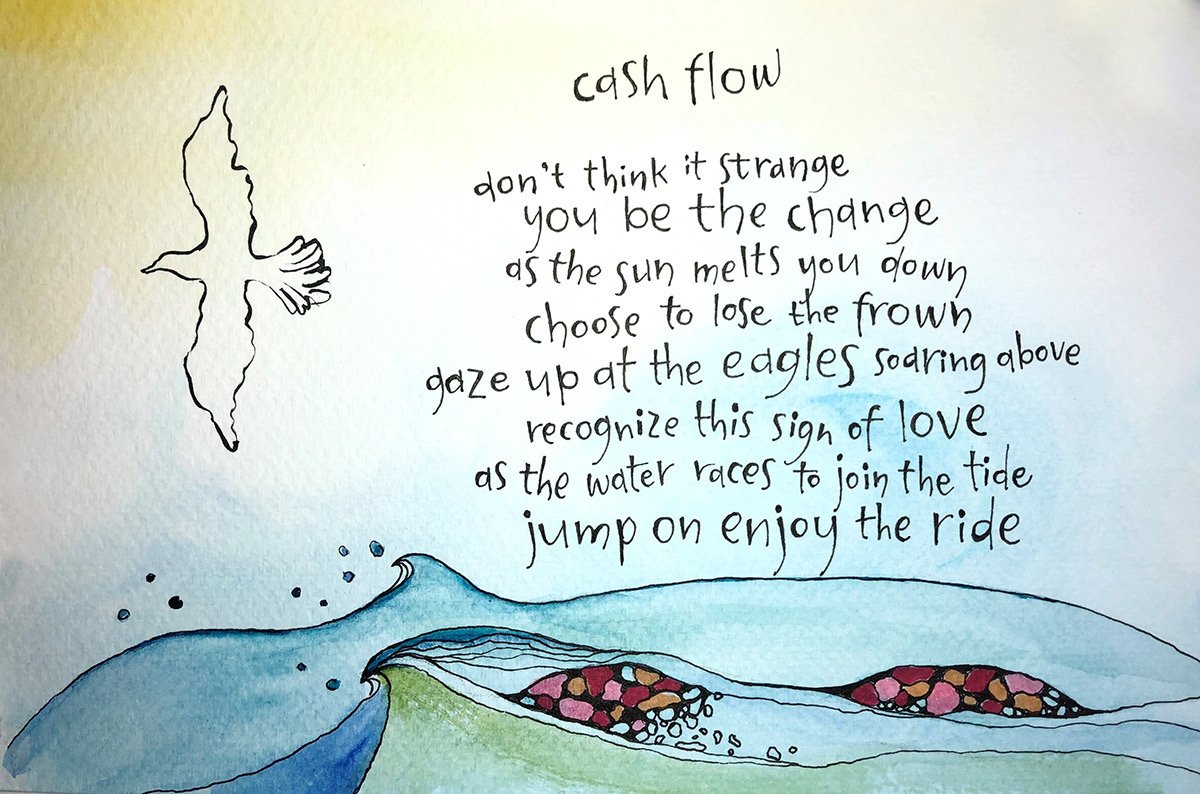 cash flow
don't think it strange
you be the change
as the sun melts you down
choose to lose the frown
gaze up at the eagles soaring above
recognize this sign of love
as the water races to join the tide
jump on enjoy the ride